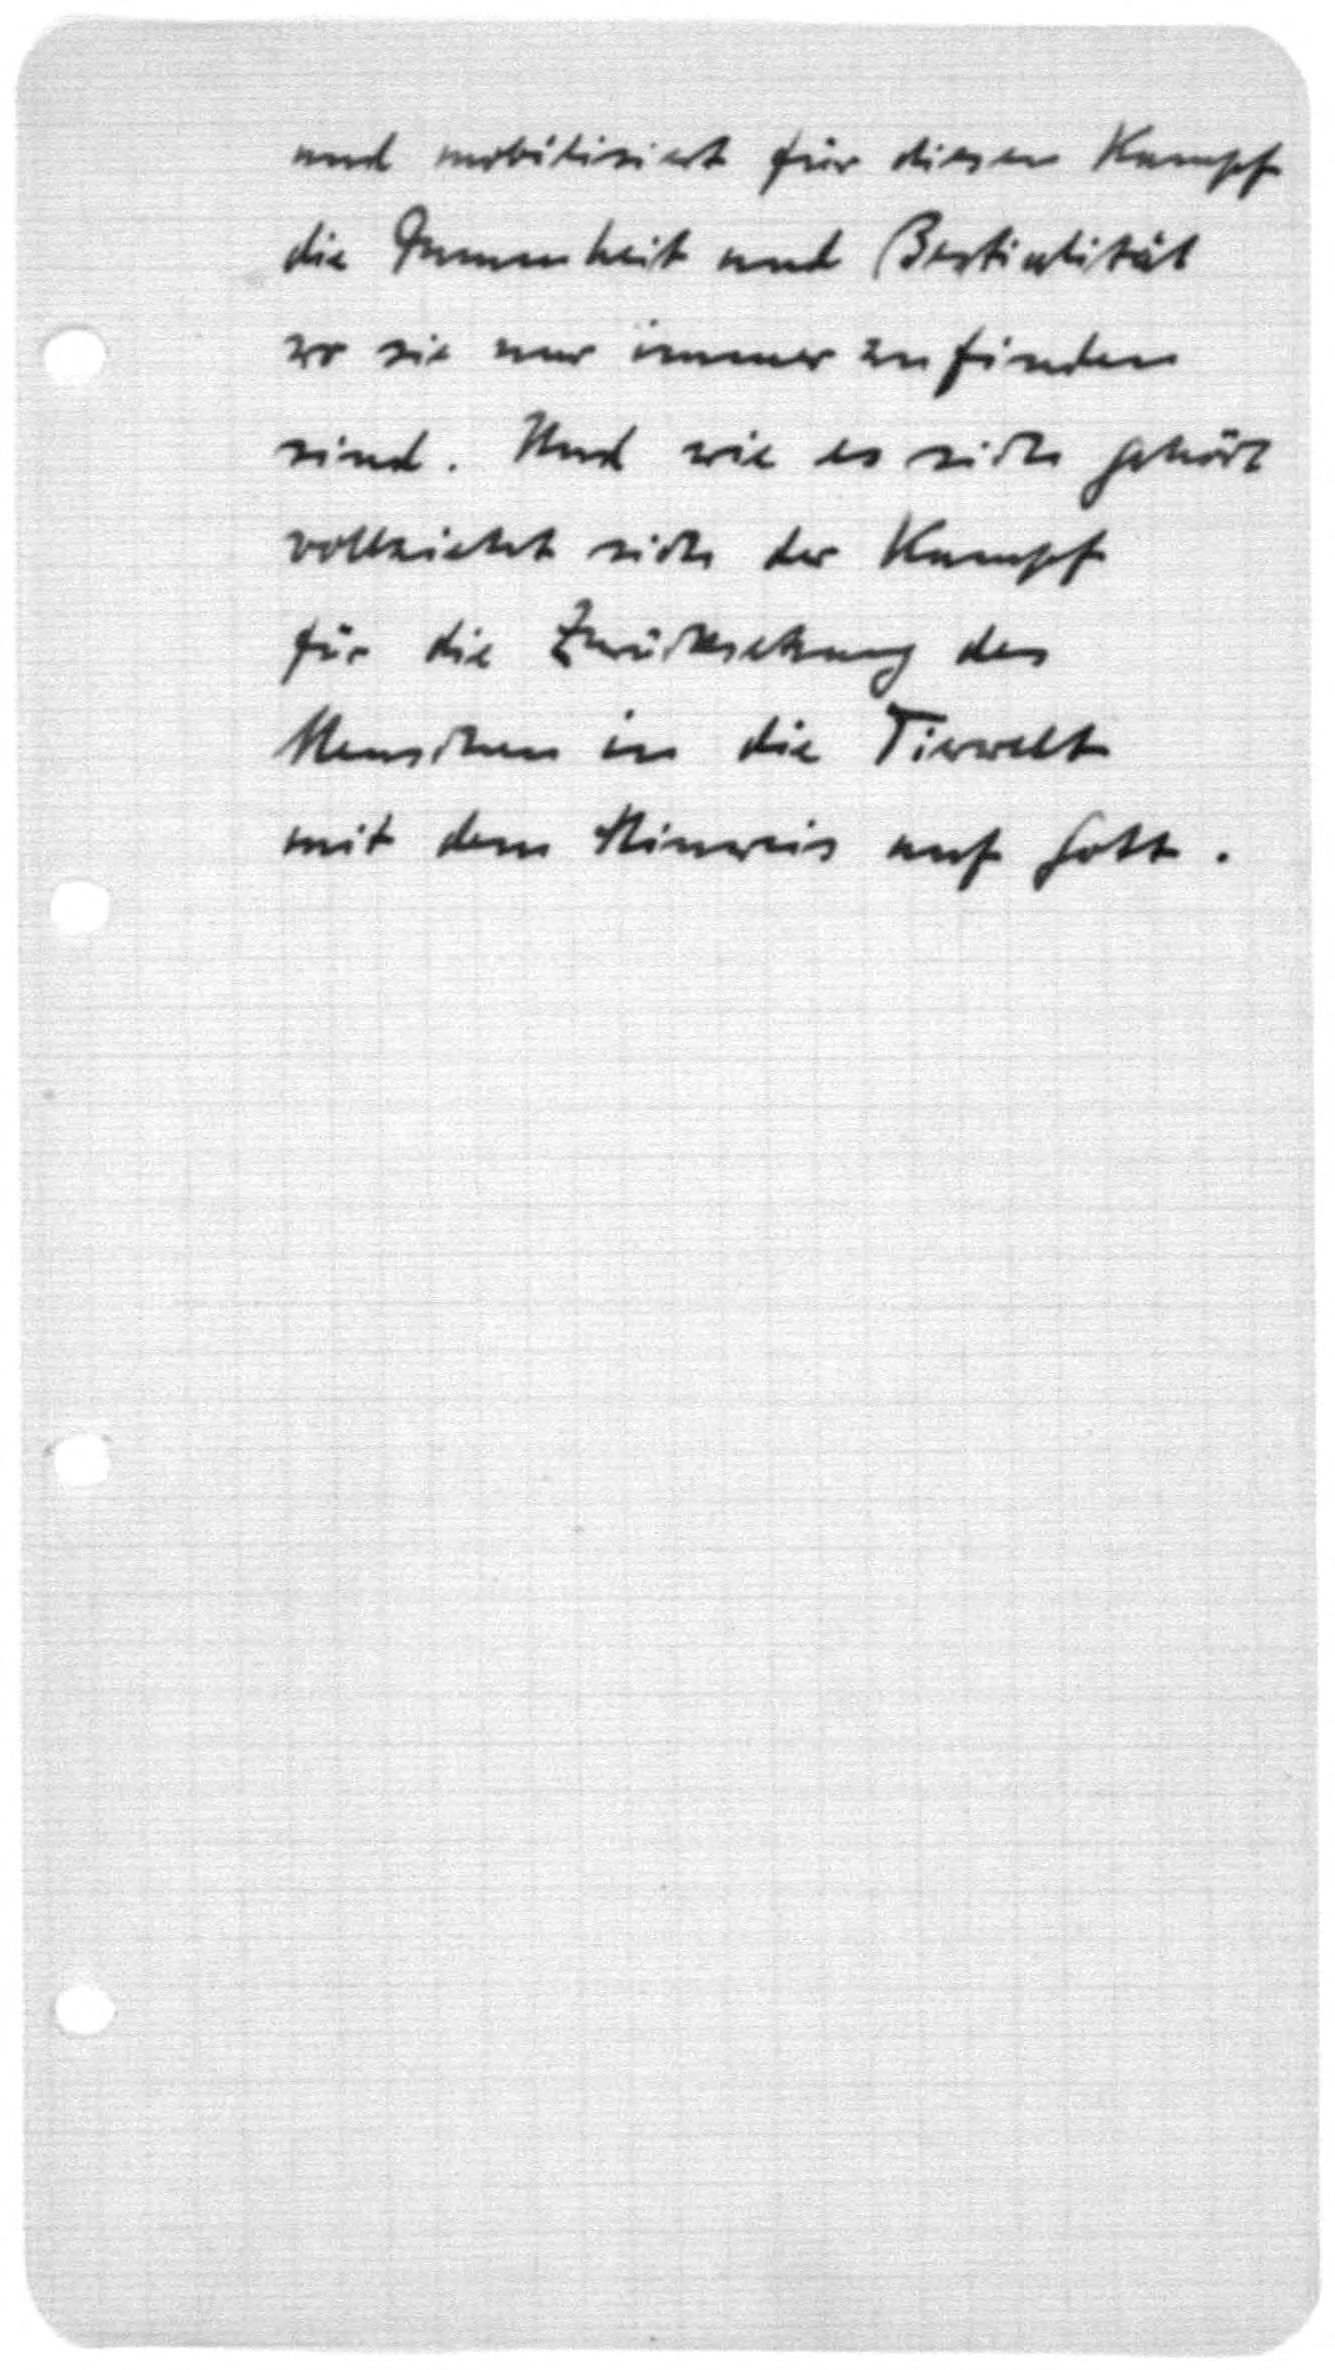 und mobilisiert für diesen Kampf
die Dummheit und Bestialität
wo sie nur immer zu finden
sind. Und wie es sich gehört
vollzieht sich der Kampf
für die Zurücksetzung des
Menschen in die Tierwelt
mit dem Hinweis auf Gott.